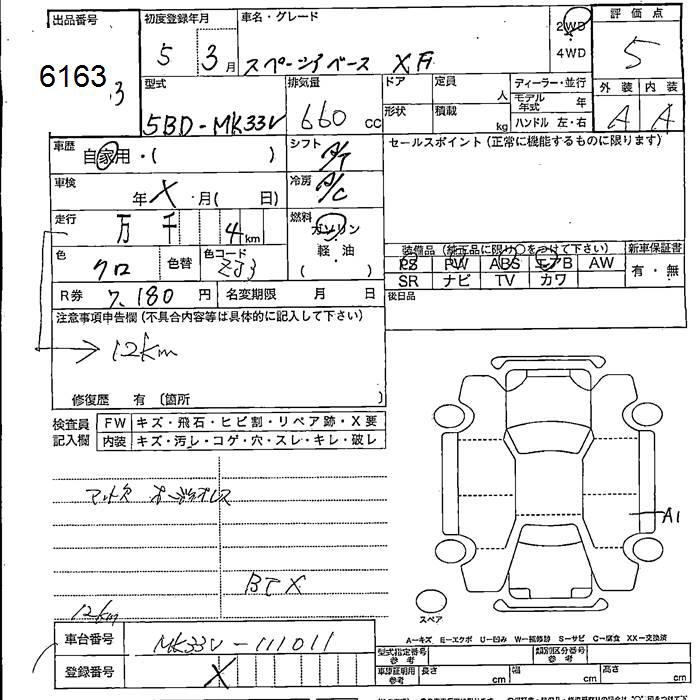 出品番号 初度登録年月 車名・グレード 2WD 評価点
6163 5 3月 スペーシアベース XF 4WD 5
3
型式 排気量 ドア 定員 ディーラー・並行 外装 内装
人 モデル年式 年
5BD-MK33V 660 cc 形状 積載 kg ハンドル 左・右 A A
車歴 自家用・( ) シフト A/T セールスポイント (正常に機能するものに限ります)
車検 年 X 月( 日) 冷房 A/C
走行 万 千 4 km 燃料 ガソリン・軽油 ( )
色 クロ 色替 色コード ZJ3
装備品 (純正品に限り○をつけて下さい) 新車保証書
PS PW ABS エアB AW 有・無
SR ナビ TV カワ
R券 7,180 円 名変期限 月 日 後日品
注意事項申告欄 (不具合内容等は具体的に記入して下さい)
12km
修復歴 有 〔箇所 〕
検査員記入欄 FW キズ・飛石・ヒビ割・リペア跡・X要
内装 キズ・汚レ・コゲ・穴・スレ・キレ・破レ
マット欠
A1
BTX
スペア
12km
車台番号 MK33V-111011
登録番号 X
A―キズ E―エクボ U―凹み W―補修跡 S―サビ C―腐食 XX―交換済
型式指定番号参考 類別区分番号参考
車庫証明用参考 長さ cm 幅 cm 高さ cm